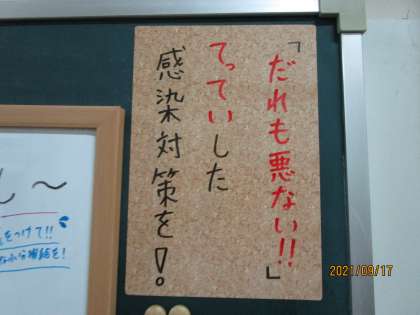 「だれも悪ない!!」
てっていした
感染対策を!
し〜
をつけて!!
水分補給を!
2021/09/17